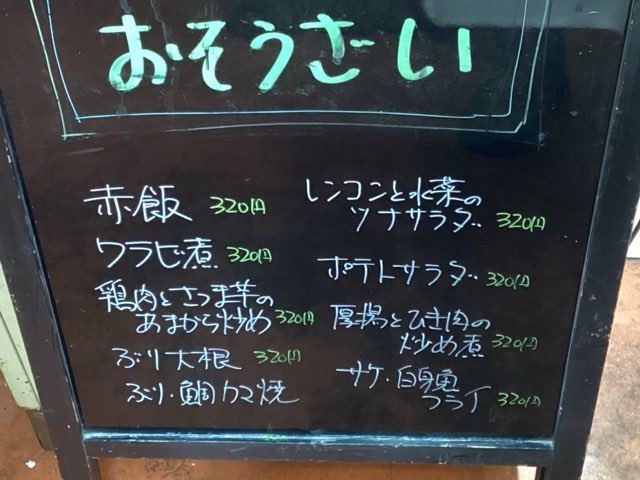 おそうざい
赤飯 320円
ワラビ煮 320円
鶏肉とさつま芋の
あまから炒め 320円
ぶり大根 320円
ぶり・鯛カマ焼
レンコンと水菜の
ツナサラダ 320円
ポテトサラダ 320円
厚揚とひき肉の
炒め煮 320円
サケ・白身魚
フライ 320円